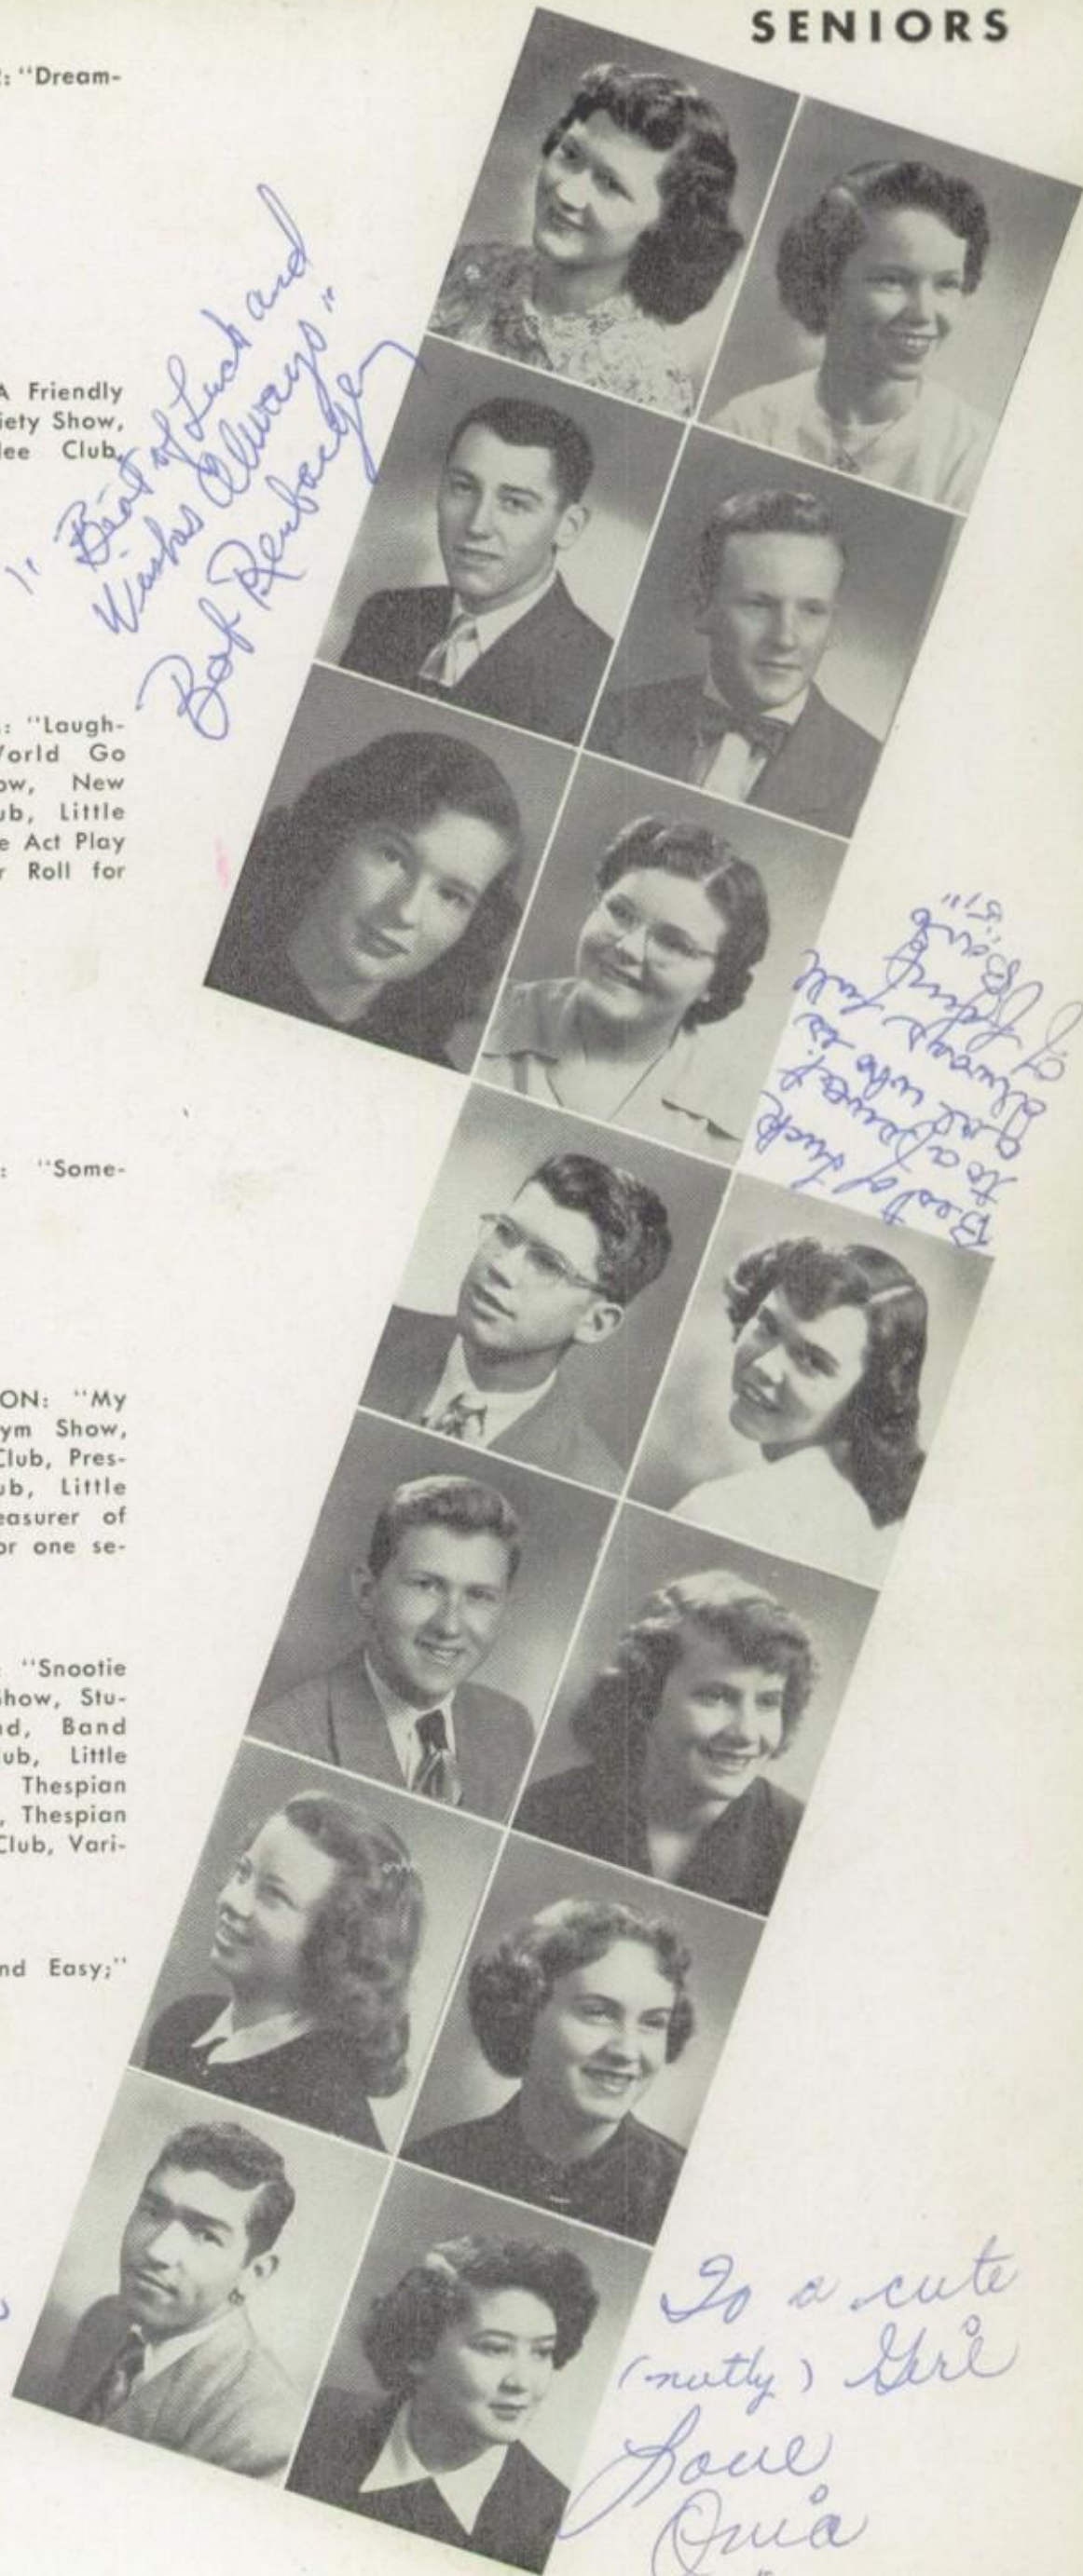 SENIORS
: "Dream-
A Friendly
iety Show,
lee Club,
" Best of Luck and
Wishes Always "
Bob
.: "Laugh-
World Go
ow, New
ub, Little
e Act Play
r Roll for
Best of luck
to a sweet
gal who is
always full
of fun
"51"
: "Some-
ON: "My
ym Show,
Club, Pres-
ub, Little
easurer of
or one se-
"Snootie
Show, Stu-
nd, Band
ub, Little
Thespian
, Thespian
Club, Vari-
nd Easy;"
To a cute
(nutty) Girl
Love